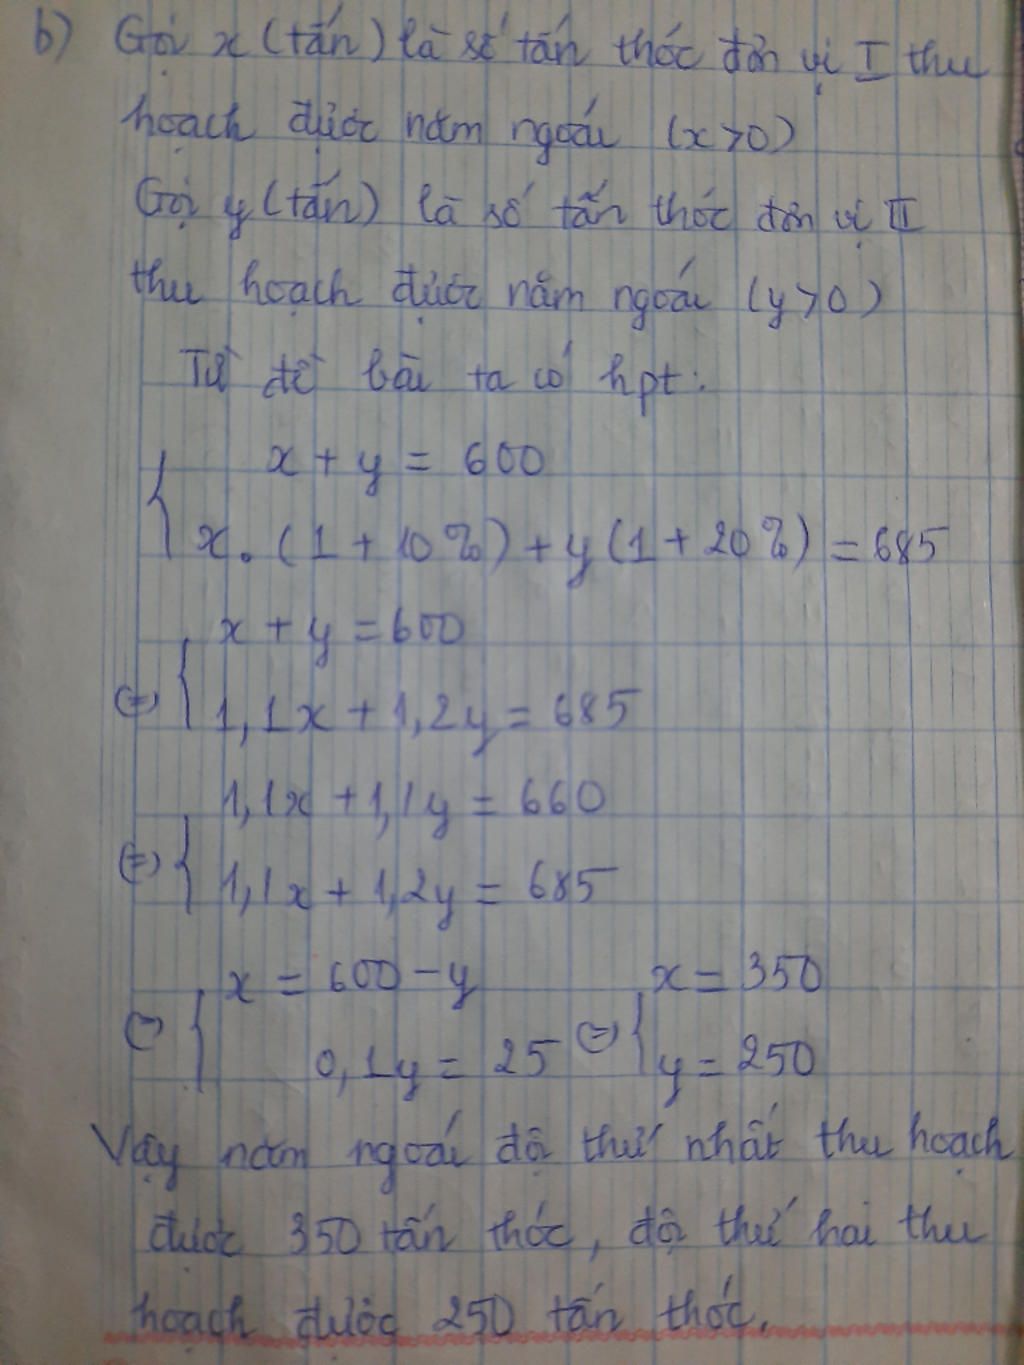 b) Gọi x (tấn) là số tấn thóc đơn vị I thu
hoạch được năm ngoái (x>0)
Gọi y (tấn) là số tấn thóc đơn vị II
thu hoạch được năm ngoái (y>0)
Từ đề bài ta có hpt:
x + y = 600
x. (1 + 10%) + y (1 + 20%) = 685
x + y = 600
(=) 1,1x + 1,2y = 685
1,1x + 1,1y = 660
(=) 1,1x + 1,2y = 685
x = 600 - y x = 350
(=) 0,1y = 25 (=) y = 250
Vậy năm ngoái đội thứ nhất thu hoạch
được 350 tấn thóc, đội thứ hai thu
hoạch được 250 tấn thóc.